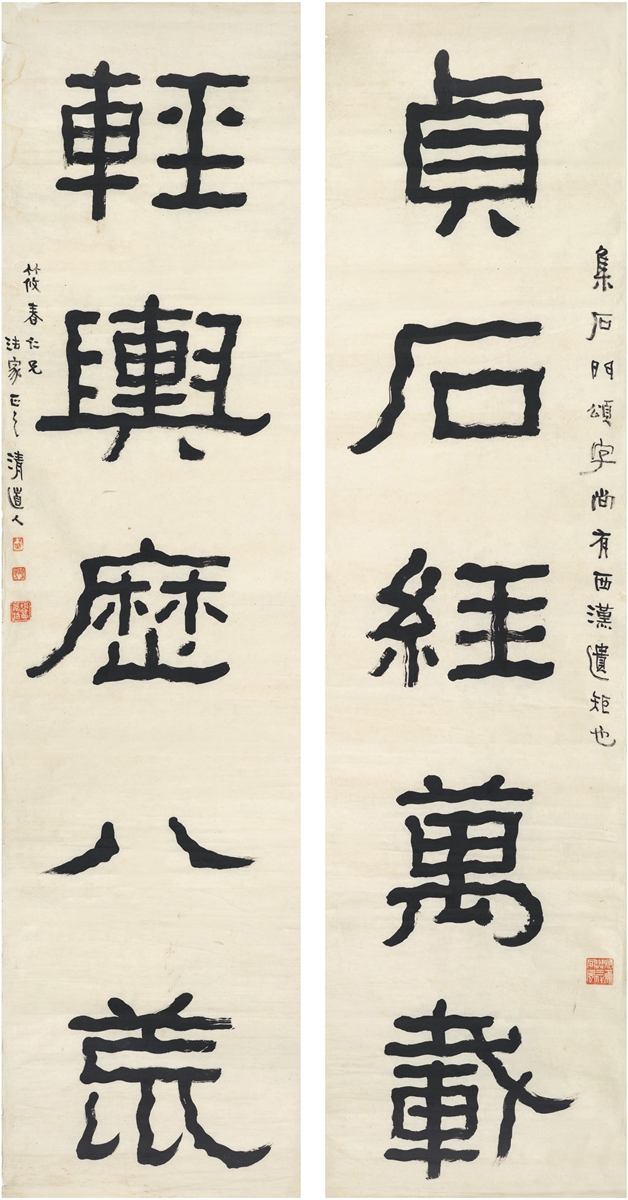 集石門頌字尚有西漢遺矩也
貞石經萬載
輕輿歷八荒
筱春仁兄
法家正之
清道人